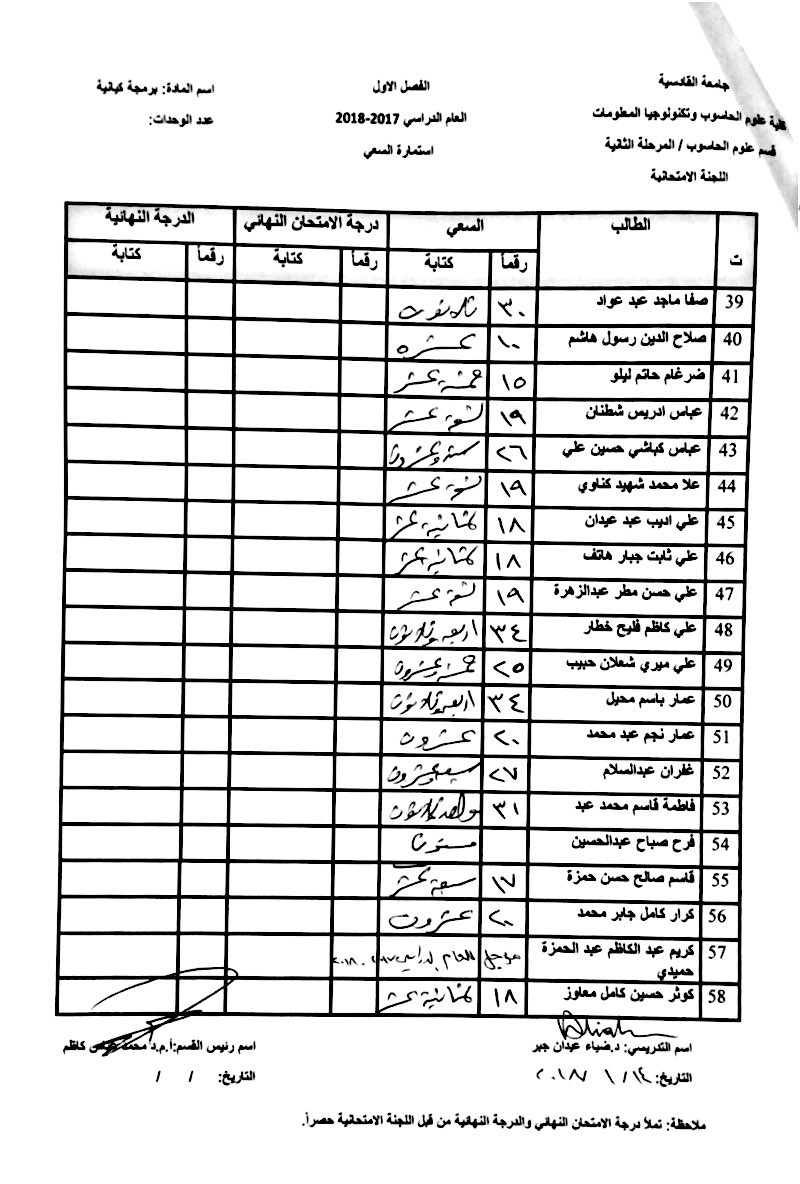 جامعة القادسية
كلية علوم الحاسوب وتكنولوجيا المعلومات
قسم علوم الحاسوب / المرحلة الثانية
اللجنة الامتحانية
الفصل الاول
العام الدراسي 2017-2018
استمارة السعي
اسم المادة: برمجة كيانية
عدد الوحدات:
ت الطالب السعي درجة الامتحان النهائي الدرجة النهائية
رقماً كتابة رقماً كتابة رقماً كتابة
39 صفا ماجد عبد عواد ٣٠ ثلاثون
40 صلاح الدين رسول هاشم ١٠ عشرة
41 ضرغام حاتم ليلو ١٥ خمسة عشر
42 عباس ادريس شطنان ١٩ تسعة عشر
43 عباس كباشي حسين علي ٢٦ ستة وعشرون
44 علا محمد شهيد كناوي ١٩ تسعة عشر
45 علي اديب عبد عيدان ١٨ ثمانية عشر
46 علي ثابت جبار هاتف ١٨ ثمانية عشر
47 علي حسن مطر عبدالزهرة ١٩ تسعة عشر
48 علي كاظم فليح خطار ٣٤ اربعة وثلاثون
49 علي ميري شعلان حبيب ٢٥ خمسة وعشرون
50 عمار باسم محيل ٣٤ اربعة وثلاثون
51 عمار نجم عبد محمد ٢٠ عشرون
52 غفران عبدالسلام ٢٧ سبعة وعشرون
53 فاطمة قاسم محمد عبد ٣١ واحد وثلاثون
54 فرح صباح عبدالحسين
55 قاسم صالح حسن حمزة ١٧ سبعة عشر
56 كرار كامل جابر محمد ٢٠ عشرون
57 كريم عبد الكاظم عبد الحمزة حميدي مؤجل للعام الدراسي ٢٠١٧-٢٠١٨
58 كوثر حسين كامل معاوز ١٨ ثمانية عشر
اسم التدريسي: د.ضياء عيدان جبر
التاريخ: ١٤ / ١ / ٢٠١٨
اسم رئيس القسم: أ.م.د محمد عباس كاظم
التاريخ: / /
ملاحظة: تملأ درجة الامتحان النهائي والدرجة النهائية من قبل اللجنة الامتحانية حصراً.